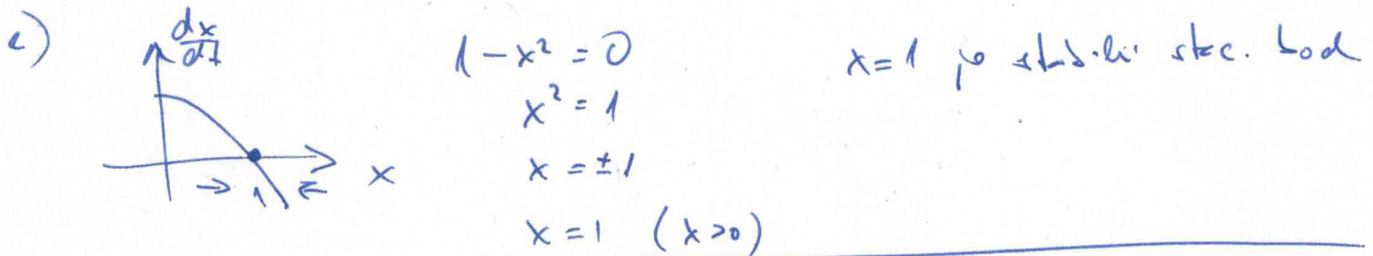 c)
dx
dt
x
1
1 - x² = 0
x² = 1
x = ±1
x = 1 (x>0)
x=1 je stabilní stac. bod